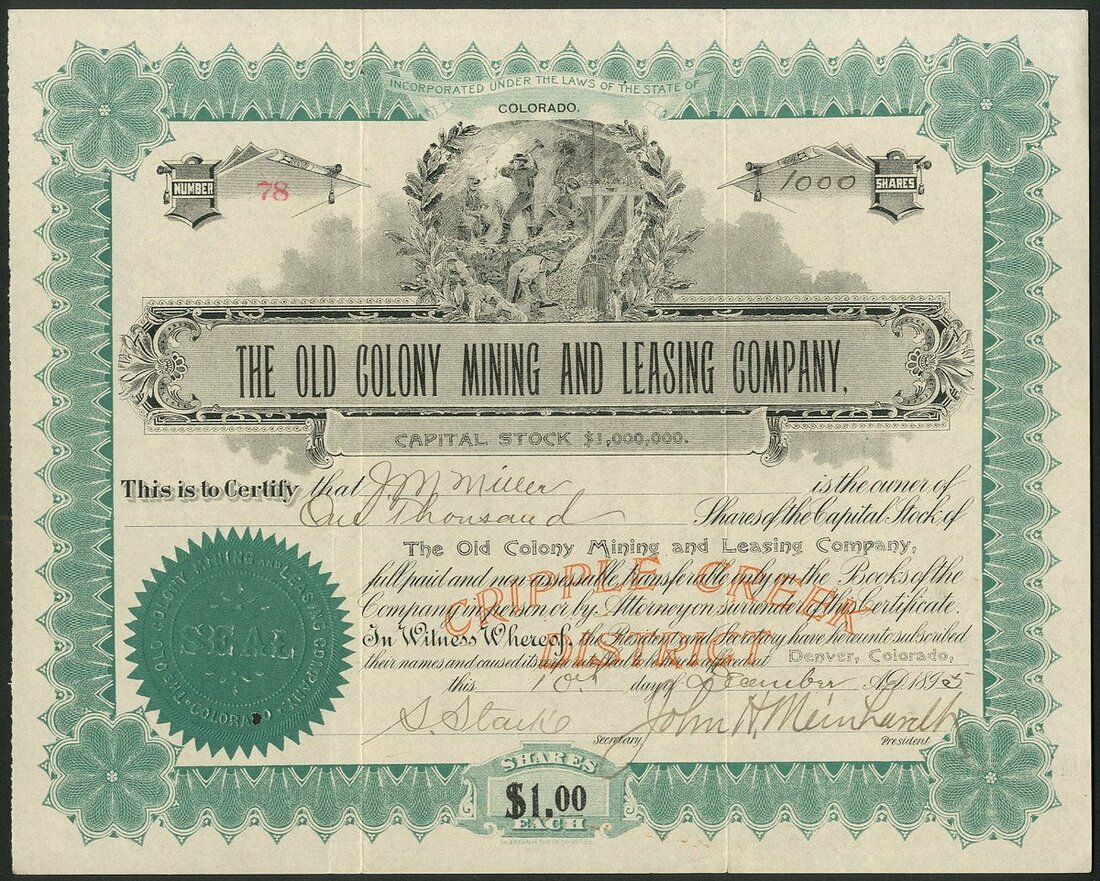 INCORPORATED UNDER THE LAWS OF THE STATE OF
COLORADO.
NUMBER 78
1000 SHARES
THE OLD COLONY MINING AND LEASING COMPANY.
CAPITAL STOCK $1,000,000.
This is to Certify that J. M. Miller is the owner of
One Thousand Shares of the Capital Stock of
The Old Colony Mining and Leasing Company,
full paid and non assessable, transferable only on the Books of the
Company in person or by Attorney on surrender of this Certificate.
In Witness Whereof, the President and Secretary have hereunto subscribed
their names and caused its to be affixed at Denver, Colorado,
this day of December A.D. 1895
CRIPPLE CREEK
DISTRICT
S. Stark Secretary
John H. Meinhardt President
THE OLD COLONY MINING AND LEASING COMPANY
SEAL
COLORADO
SHARES
$1.00
EACH